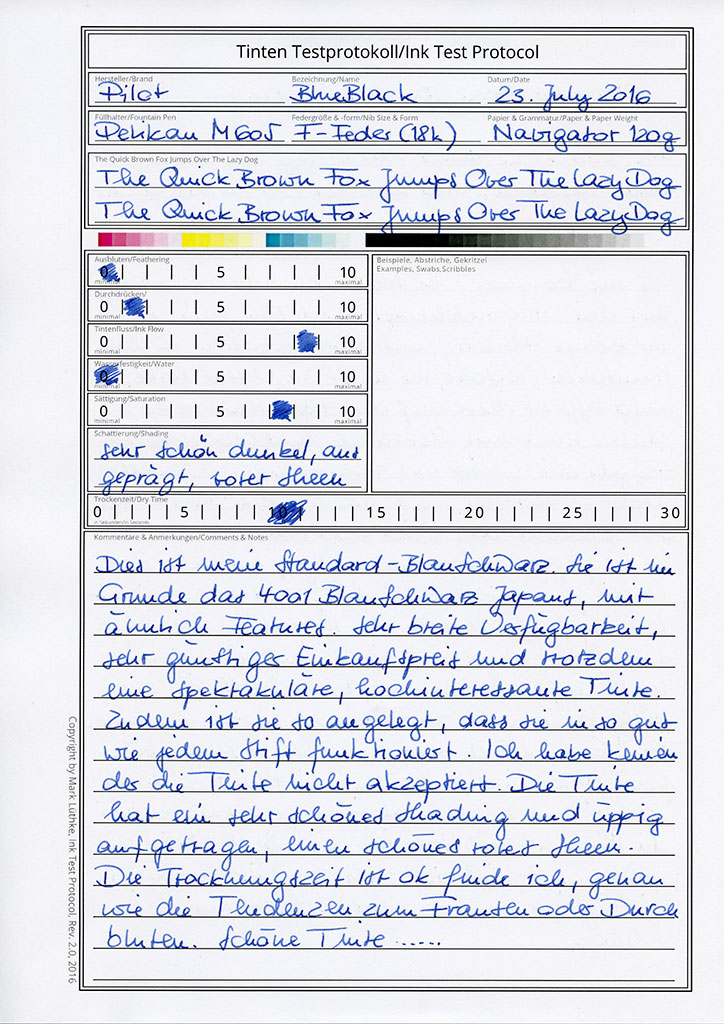 Tinten Testprotokoll/Ink Test Protocol
Hersteller/Brand Bezeichnung/Name Datum/Date
Pilot BlueBlack 23. July 2016
Füllhalter/Fountain Pen Federgröße & -form/Nib Size & Form Papier & Grammatur/Paper & Paper Weight
Pelikan M605 F-Feder (18k) Navigator 120g
The Quick Brown Fox Jumps Over The Lazy Dog
The Quick Brown Fox Jumps Over The Lazy Dog
The Quick Brown Fox Jumps Over The Lazy Dog
Ausbluten/Feathering
0 | | | | 5 | | | | 10
minimal maximal
Durchdrücken/
0 | | | | 5 | | | | 10
minimal maximal
Tintenfluss/Ink Flow
0 | | | | 5 | | | | 10
minimal maximal
Wasserfestigkeit/Water
0 | | | | 5 | | | | 10
minimal maximal
Sättigung/Saturation
0 | | | | 5 | | | | 10
minimal maximal
Schattierung/Shading
sehr schön dunkel, aus
geprägt, roter Sheen
Beispiele, Abstriche, Gekritzel
Examples, Swabs,Scribbles
Trockenzeit/Dry Time
0 | | | | 5 | | | | 10 | | | | 15 | | | | 20 | | | | 25 | | | | 30
in Sekunden/in Seconds
Kommentare & Anmerkungen/Comments & Notes
Dies ist meine Standard-BlauSchwarz. Sie ist im
Grunde das 4001 BlauSchwarz Japans, mit
ähnlich Features. Sehr breite Verfügbarkeit,
sehr günstiger Einkaufspreis und trotzdem
eine spektakuläre, hochinteressante Tinte.
Zudem ist sie so angelegt, dass sie in so gut
wie jedem Stift funktioniert. Ich habe keinen
der die Tinte nicht akzeptiert. Die Tinte
hat ein sehr schönes Shading und üppig
aufgetragen, einen schönes rotes Sheen.
Die Trocknungszeit ist ok finde ich, genau
wie die Tendenzen zum Fransen oder Durch
bluten. Schöne Tinte ......
Copyright by Mark Luthke, Ink Test Protocol, Rev. 2.0, 2016